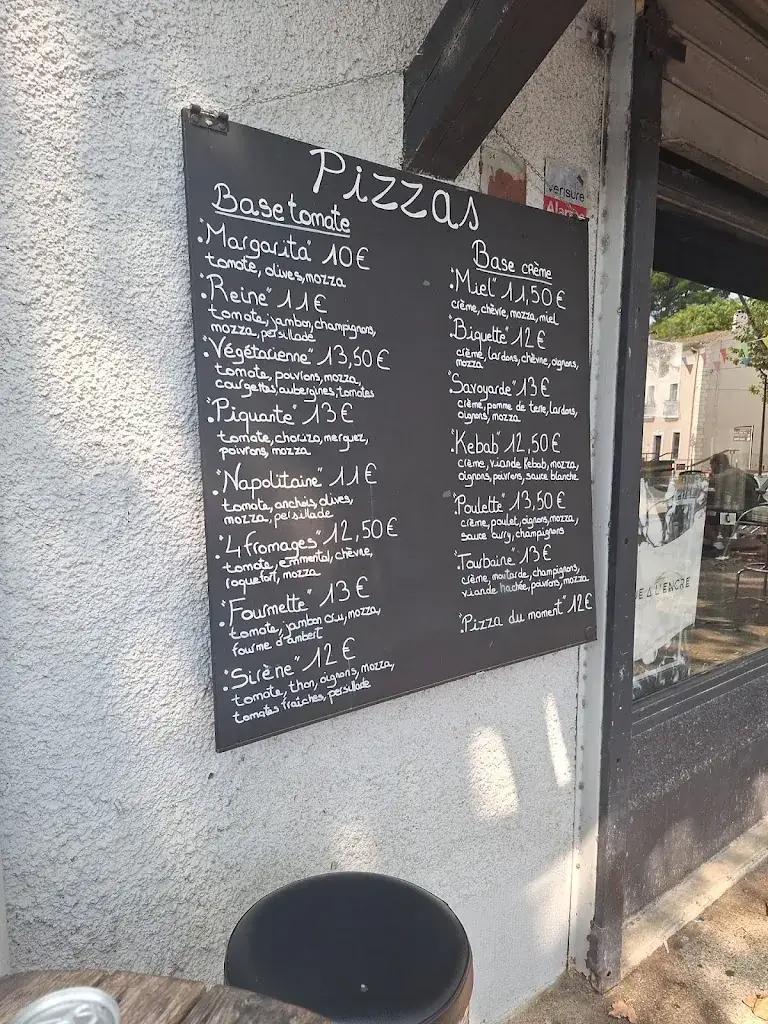 Pizzas
Base tomate
"Margarita" 10€
tomate, olives, mozza
"Reine" 11€
tomate, jambon, champignons,
mozza, persillade
"Végétarienne" 13,50€
tomate, poivrons, mozza,
courgettes, aubergines, tomates
"Piquante" 13€
tomate, chorizo, merguez,
poivrons, mozza
"Napolitaine" 11€
tomate, anchois, olives,
mozza, persillade
"4 fromages" 12,50€
tomate, emmental, chèvre,
roquefort, mozza
"Fourmette" 13€
tomate, jambon cru, mozza,
fourme d'ambert
"Sirène" 12€
tomate, thon, oignons, mozza,
tomates fraîches, persillade
Base crème
"Miel" 11,50€
crème, chèvre, mozza, miel
"Biquette" 12€
crème, lardons, chèvre, oignons,
mozza
"Savoyarde" 13€
crème, pomme de terre, lardons,
oignons, mozza
"Kebab" 12,50€
crème, viande kebab, mozza,
oignons, poivrons, sauce blanche
"Poulette" 13,50€
crème, poulet, oignons, mozza,
sauce curry, champignons
"Tourbaine" 13€
crème, moutarde, champignons,
viande hachée, poivrons, mozza
"Pizza du moment" 12€
verisure
Alarme
E A L'ENCRE